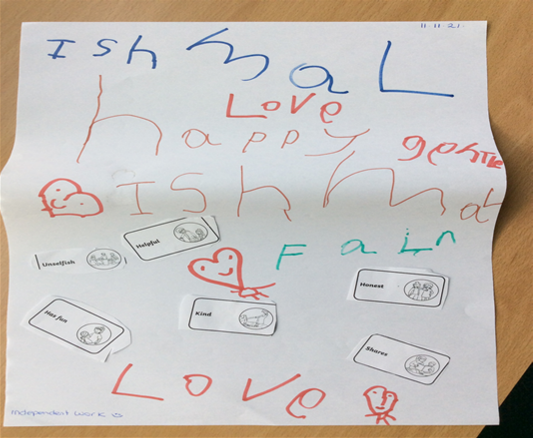 11.11.21
IshmaL
Love
happy
gentle
Ishma
FaIr
Unselfish
Helpful
Honest
Has fun
Kind
Shares
Love
independent work